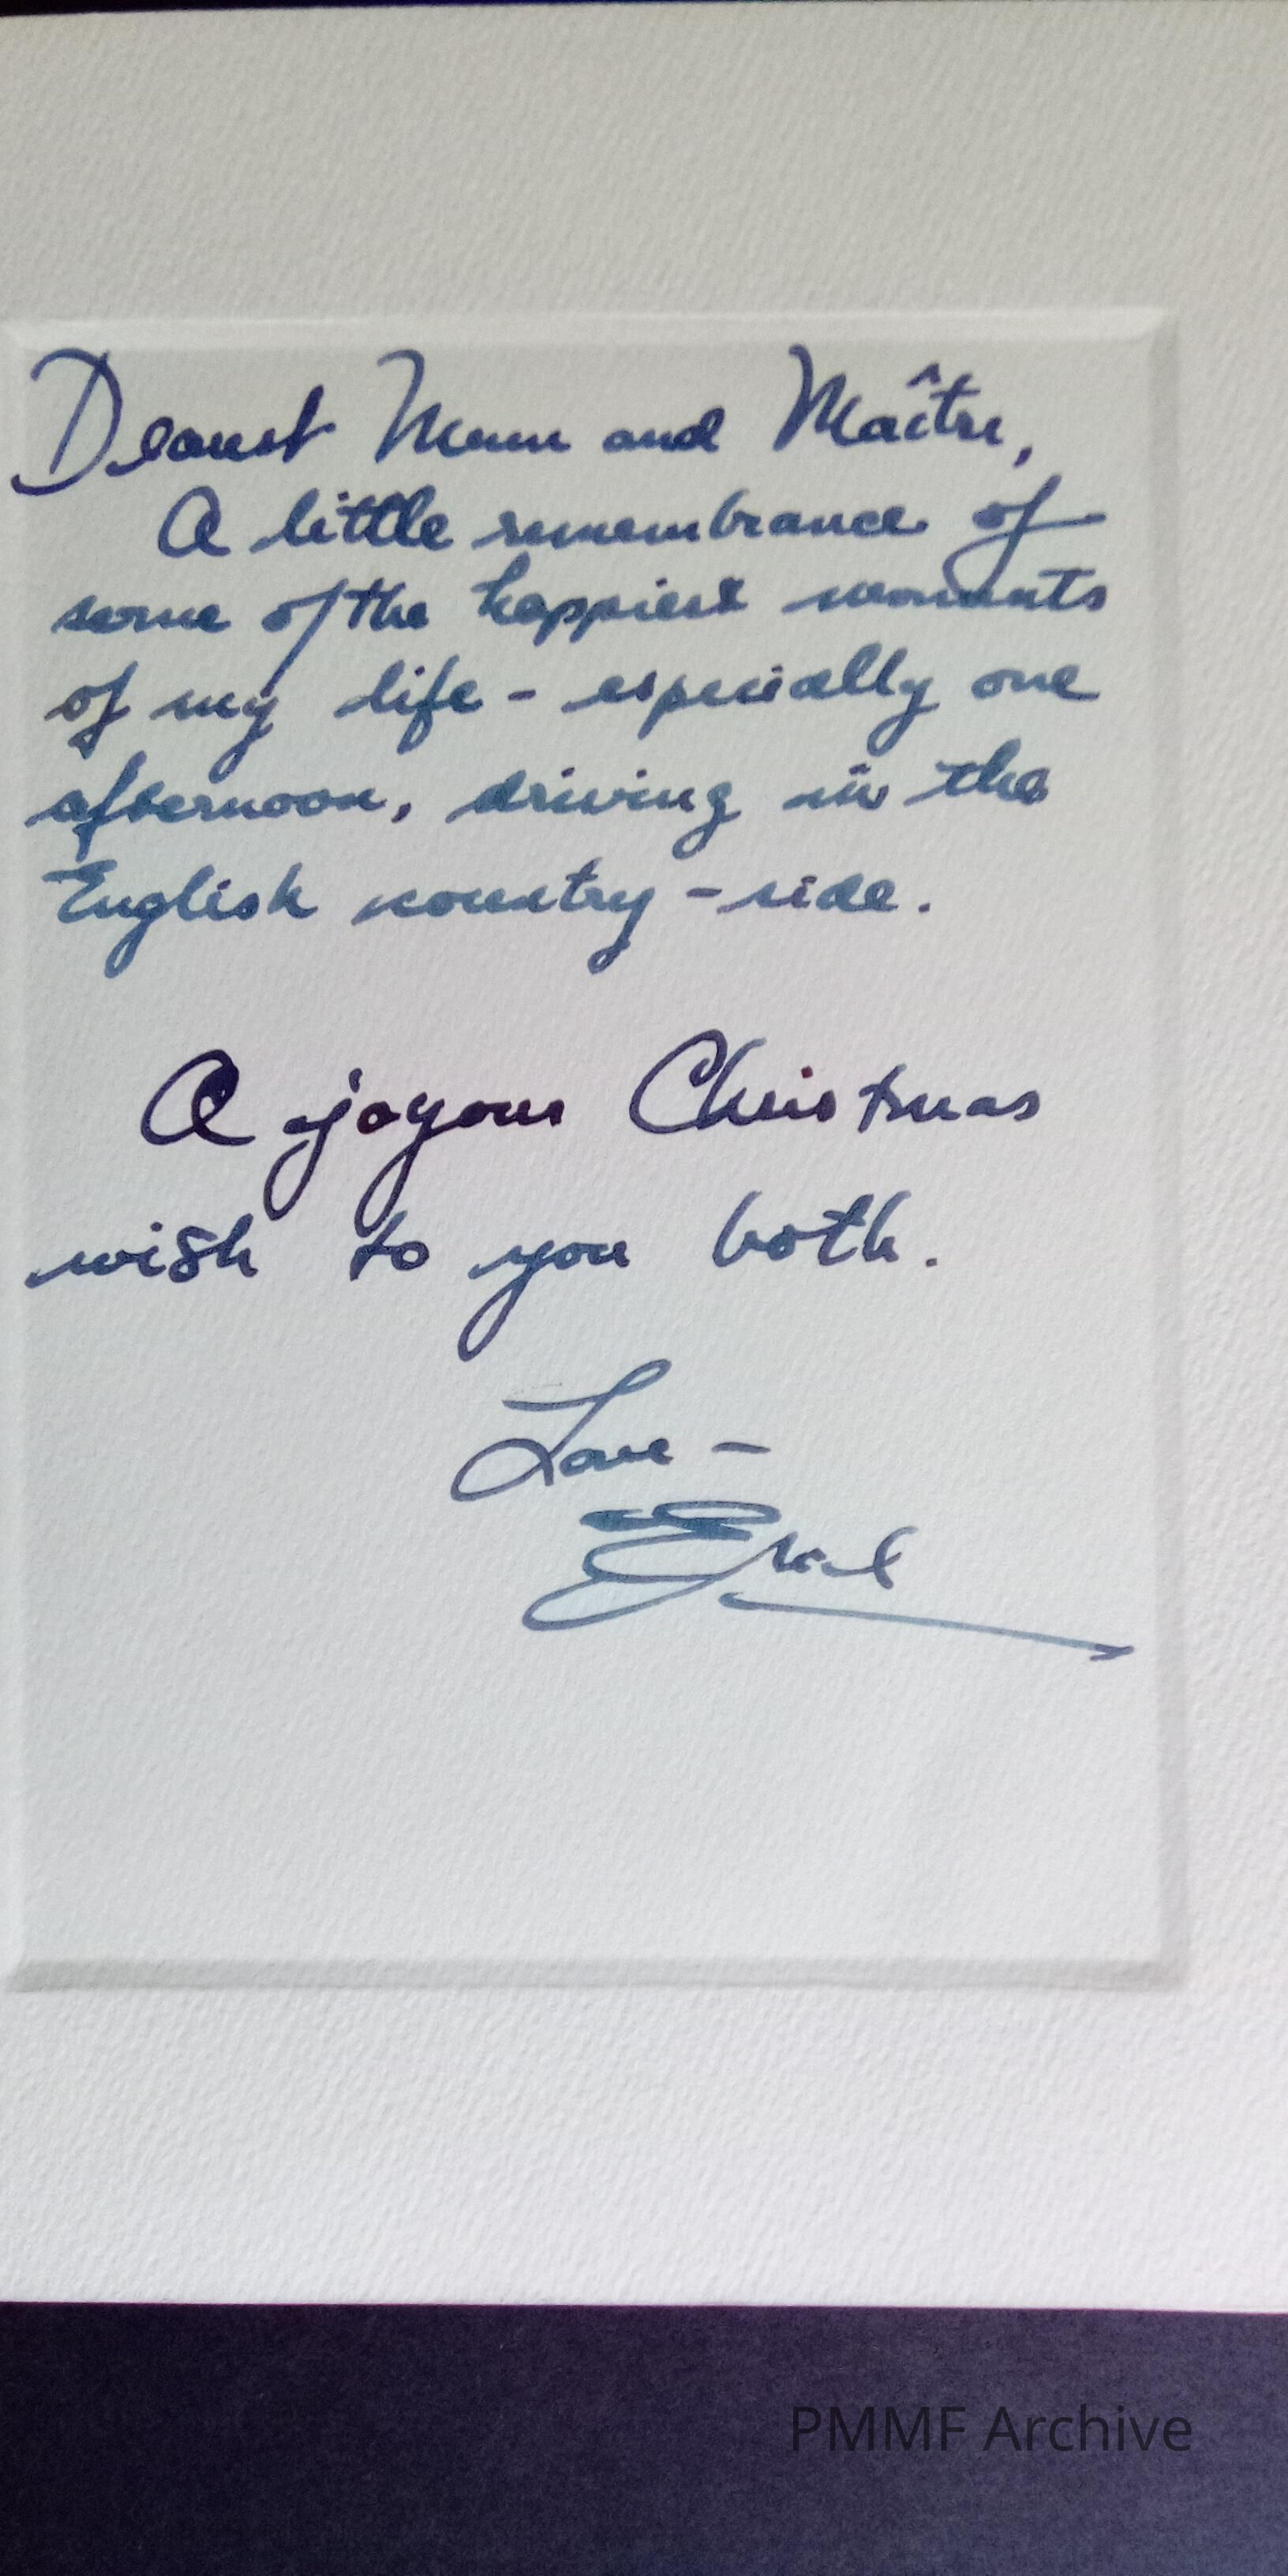 Dearest Mum and Maître,
A little remembrance of
some of the happiest moments
of my life - especially one
afternoon, driving in the
English country-side.
A joyous Christmas
wish to you both.
Love -
PMMF Archive